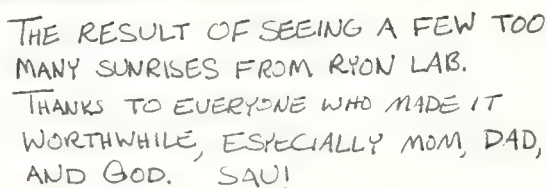 THE RESULT OF SEEING A FEW TOO
MANY SUNRISES FROM RYON LAB.
THANKS TO EVERYONE WHO MADE IT
WORTHWHILE, ESPECIALLY MOM, DAD,
AND GOD. SAU!